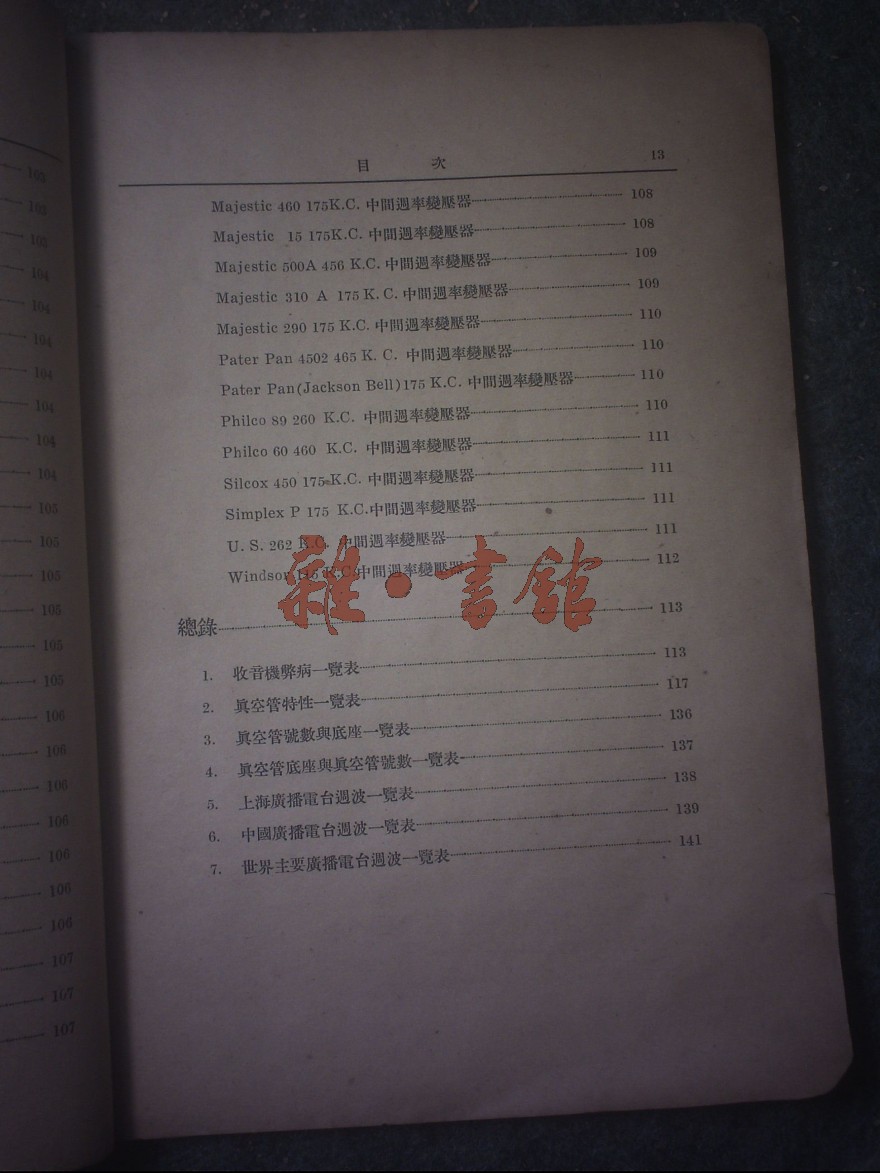 目 次 13
Majestic 460 175K.C. 中間週率變壓器 108
Majestic 15 175K.C. 中間週率變壓器 108
Majestic 500A 456 K.C. 中間週率變壓器 109
Majestic 310 A 175 K. C. 中間週率變壓器 109
Majestic 290 175 K.C. 中間週率變壓器 110
Pater Pan 4502 465 K. C. 中間週率變壓器 110
Pater Pan(Jackson Bell)175 K.C. 中間週率變壓器 110
Philco 89 260 K.C. 中間週率變壓器 110
Philco 60 460 K.C. 中間週率變壓器 111
Silcox 450 175 K.C. 中間週率變壓器 111
Simplex P 175 K.C.中間週率變壓器 111
U. S. 262 K.C. 中間週率變壓器 111
Windsor 115 K.C.中間週率變壓器 112
總錄 113
1. 收音機弊病一覽表 113
2. 眞空管特性一覽表 117
3. 眞空管號數與底座一覽表 136
4. 眞空管底座與眞空管號數一覽表 137
5. 上海廣播電台週波一覽表 138
6. 中國廣播電台週波一覽表 139
7. 世界主要廣播電台週波一覽表 141
雜·書館
103
103
103
104
104
104
104
104
104
104
105
105
105
105
105
105
106
106
106
106
106
106
106
107
107
107